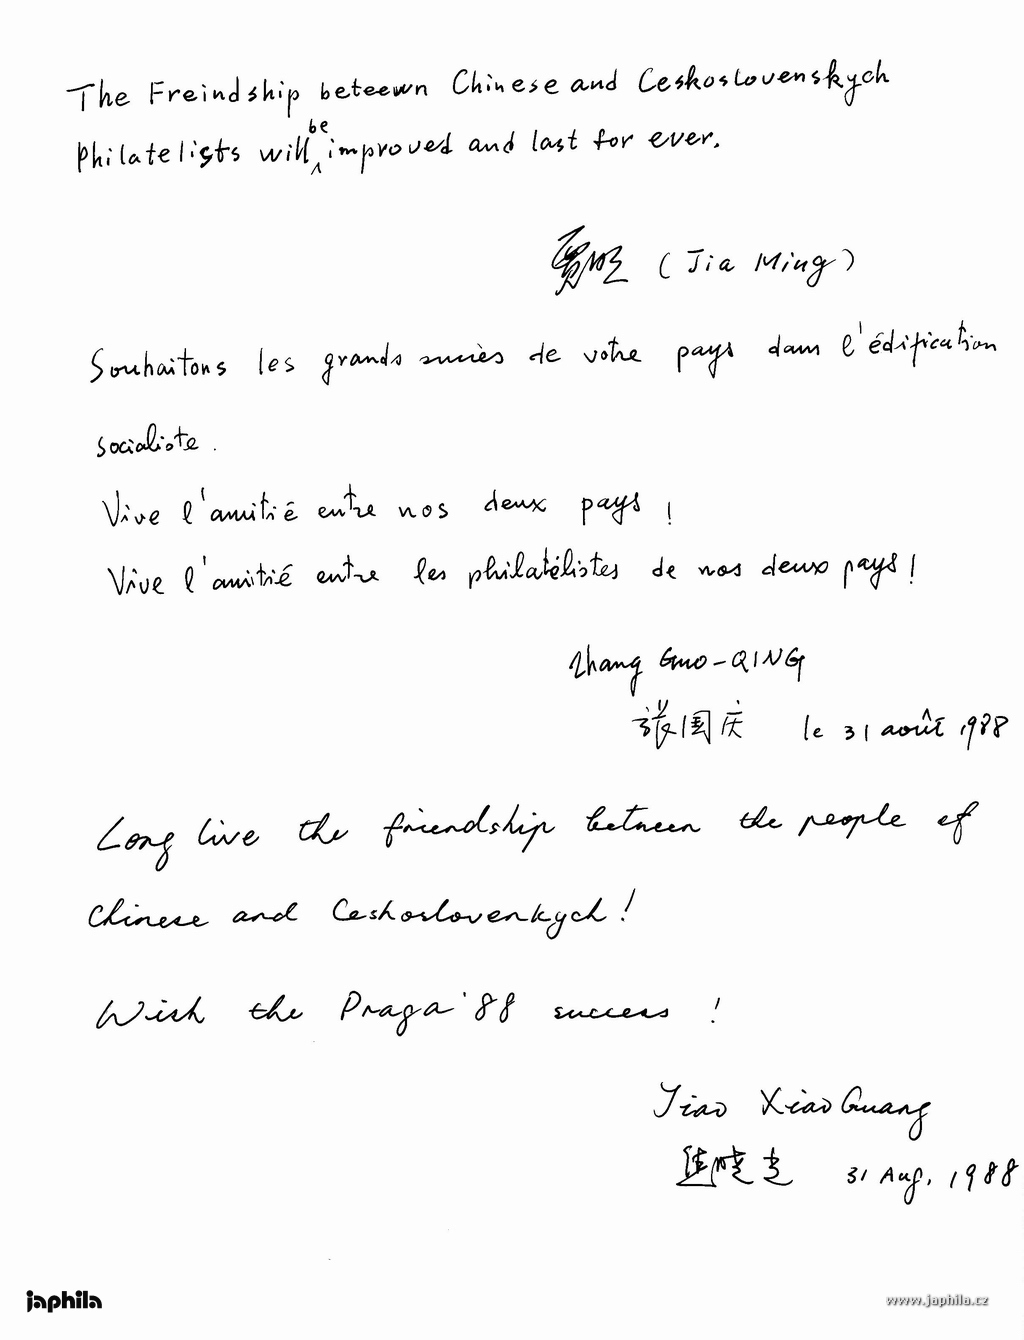 The Freindship beteewn Chinese and Ceskoslovenskych
Philatelists will be improved and last for ever.
贾明 (Jia Ming)
Souhaitons les grands succès de votre pays dans l'édification
socialiste.
Vive l'amitié entre nos deux pays !
Vive l'amitié entre les philatélistes de nos deux pays !
Zhang Guo-QING
張国庆 le 31 août 1988
Long live the friendship between the people of
Chinese and Ceskoslovenkych!
Wish the Praga '88 success !
Jiao Xiao Guang
焦晓光 31 Aug. 1988
japhila
www.japhila.cz